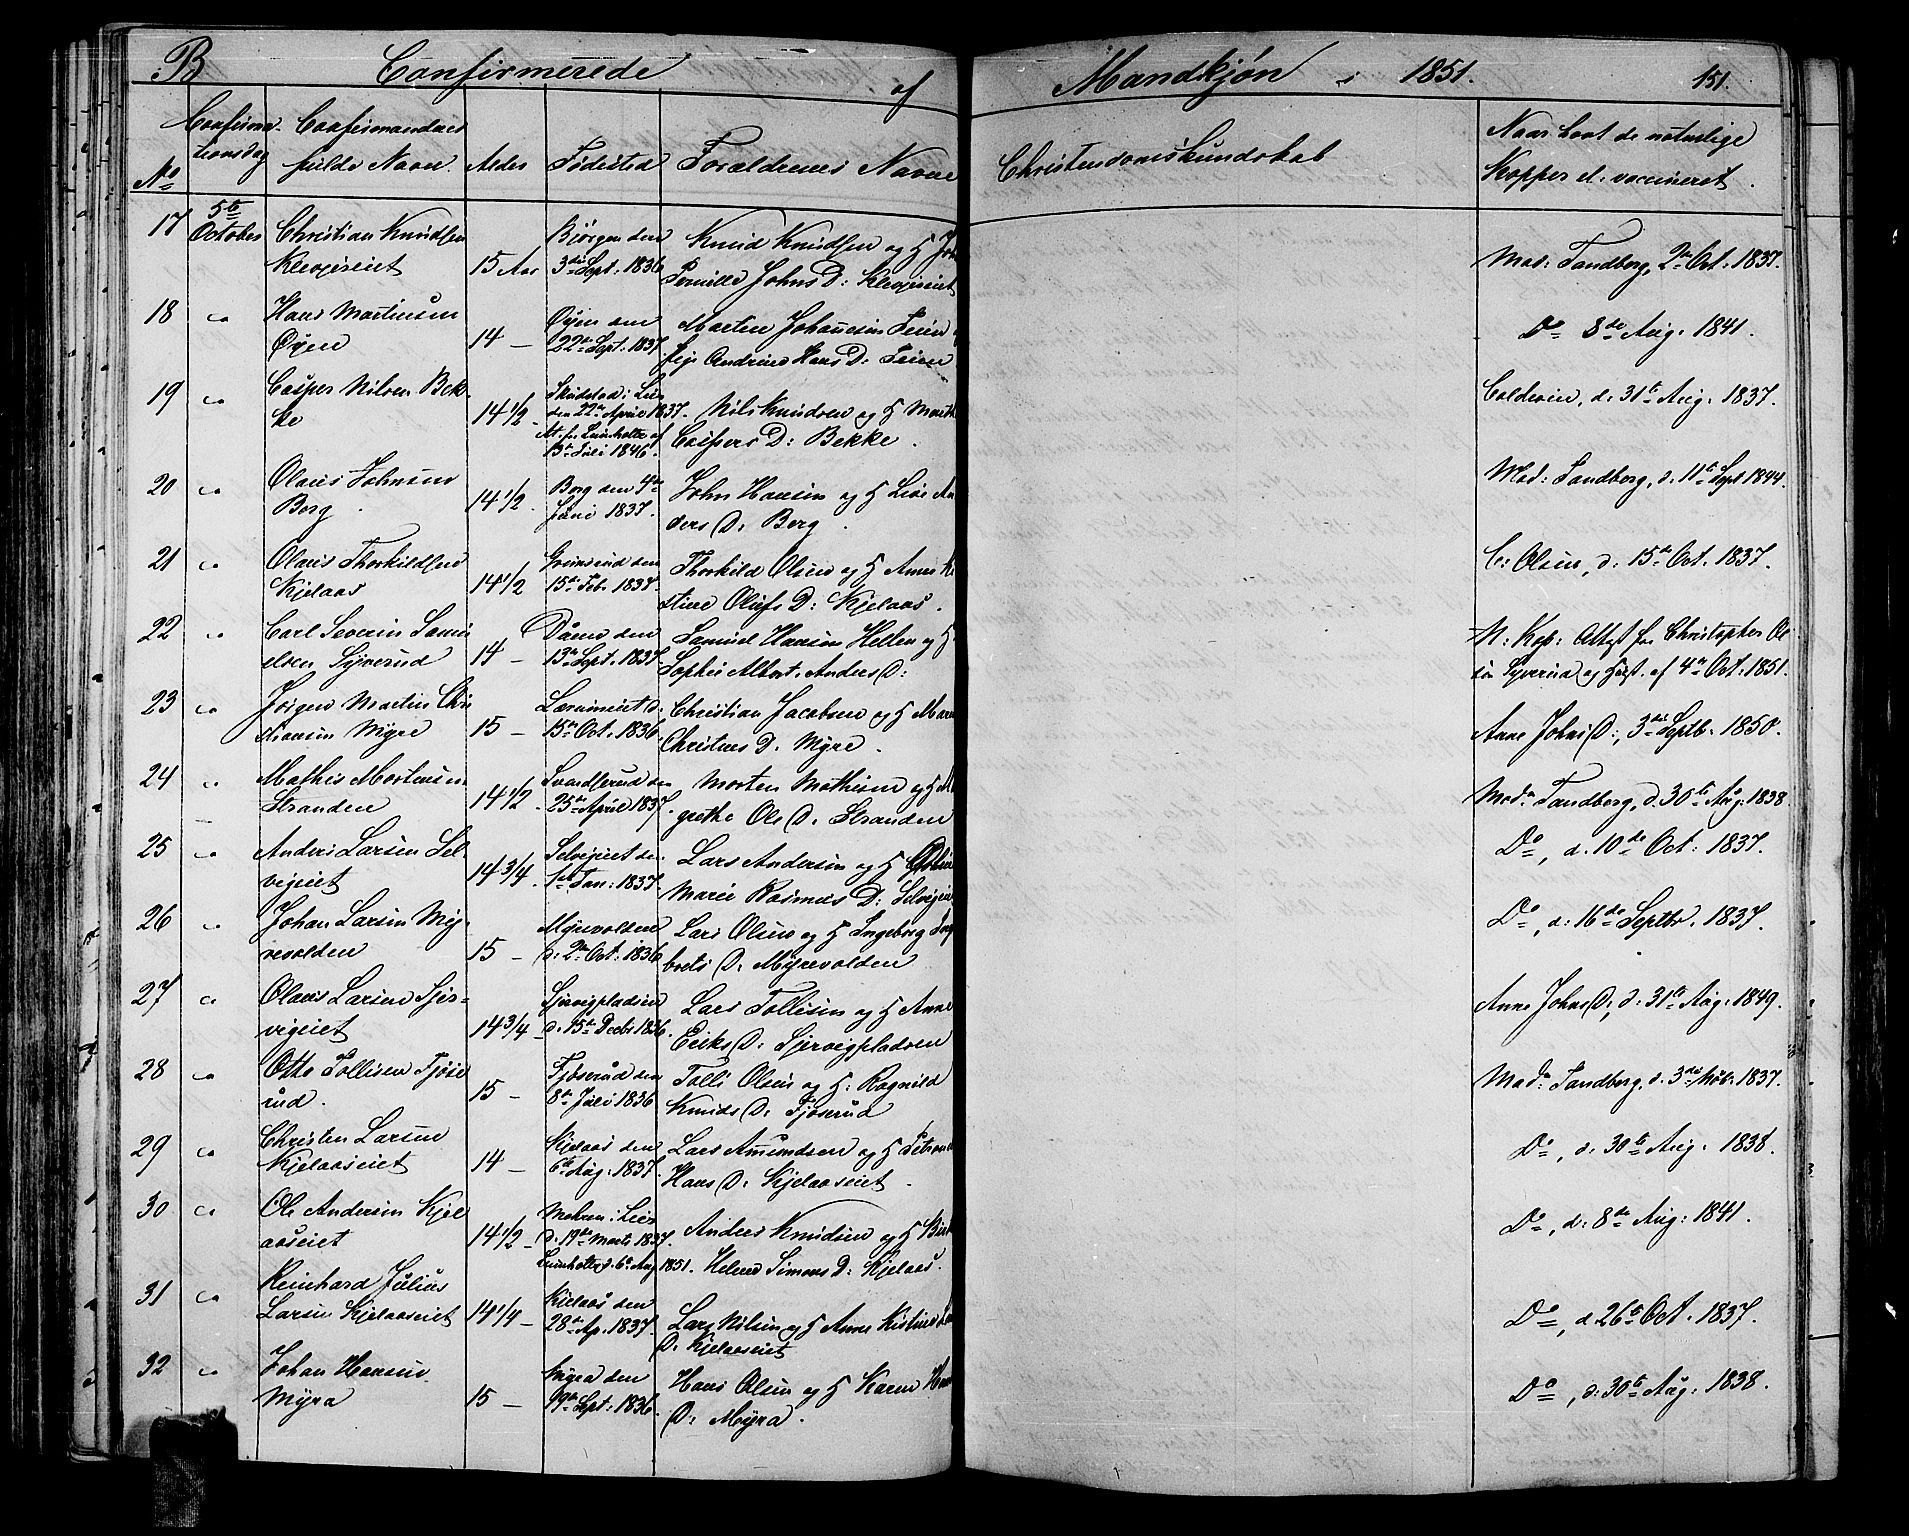 B Confirmerede af Mandkjøn i 1851. 151.
No Confirmationsdag Confirmandens fulde Navn. Alder Fødested Forældrenes Navne Christendomskundskab Naar havt de naturlige Kopper el. vaccineret.
17 5te October Christian Knudsen 15 Aar 3die Sept. 1836 Knud Knudsen og H
Pernille Johns D: Mad: Tandberg, 2den Oct: 1837.
18 do Hans Martinsen
Øyen 14 — Øyen den
22de Sept. 1837 Marten Johannesen
Andrine Hans D: Do 8de Aug: 1841.
19 do Casper Nilsen Bek-
ke 14 1/2 i Lier
den 22de April 1837.
13de Juli 1846. Nils Knudsen og H
Caspers D: Bekke. d. 31te Aug: 1837.
20 do Olaus Johnsen
Berg 14 1/2. Berg den
Juni 1837. John Hansen og H Lise An
ders D: Berg. Mad: Tandberg, d. 11te Sept 1844.
21 do Olaus Thorkildsen
Kjelaas 14 1/2 Grimsrud den
15de Feb. 1837. Thorkild Olsen og H Anne Ki
stine Olufs D: Kjelaas. C: Olsen, d. 15de Oct. 1837.
22 do Carl Severin Sam
elsen Syverud 14 — den
13de Sept. 1837. Samuel Hansen Hellen og H
Sophie Albert. Anders D: N: Kop: Attest fra Christopher Ol
sen Syverud og Hust. af 4de Oct: 1851.
23 do Jørgen Martin Chri
stiansen Myre 15 — 15de Oct. 1836. Christian Jacobsen og H Maren
Christens D. Myre. Anne Johns D:, 3die Septb. 1850.
24 do Mathis Mortensen
Stranden 14 1/2. den
25de April 1837. Morten Mathisen og H
grethe Ole D. Stranden Mad: Tandberg, d. 30te Aug: 1838
25 do Anders Larsen Sel-
vigeiet 14 3/4. Selvigeiet den
1ste Jan: 1837. Lars Andersen og H
Marie Rasmus D: Selvigeiet Do, d. 10de Oct: 1837.
26 do Johan Larsen My-
revolden 15 — Myrevolden
d. 2den Oct: 1836 Lars Olsen og H Ingeborg Ing
brets D. Myrevolden Do, d: 16de Septbr. 1837.
27 do Olaus Larsen Sjer-
vigeiet 14 3/4 — Sjervigpladsen
d. 15de Decbr 1836. Lars Tollisen og H Anne
Eriks D. Sjervigpladsen Anne Johns D, d: 31te Aug: 1849.
28 do Otto Tollisen Tjøse
rud. 15 — Tjøserud den
8de Juli 1836 Tolli Olsen og H: Ragnild
Knuds D. Tjøserud Mad: Tandberg, d. 3die Nob: 1837.
29 do Christen Larsen
Kjelaaseiet 14 — Kjelaas den
6te Aug: 1837. Lars Amundsen og H
Hans D. Kjelaaseiet. Do, d. 30te Aug. 1838.
30 do Ole Andersen Kjel
aaseiet 14 1/2 — i Lier
d. 19de Marts 1837.
d. 6te Aug 1851. Anders Knudsen og H
Helene Simons D: Kjelaas. Do, d: 8de Aug: 1841.
31 do Reinhard Julius
Larsen Kjelaaseiet 14 1/4 — Kjelaas den
28de Ap. 1837. Lars Nilsen og H Anne Kistine
D. Kjelaaseiet Do, d 26te Oct. 1837.
32 do Johan Hansen
Myra 15 — Myra den
19de Sept: 1836. Hans Olsen og H Karen
D: Myra. Do, d: 30te Aug. 1838.